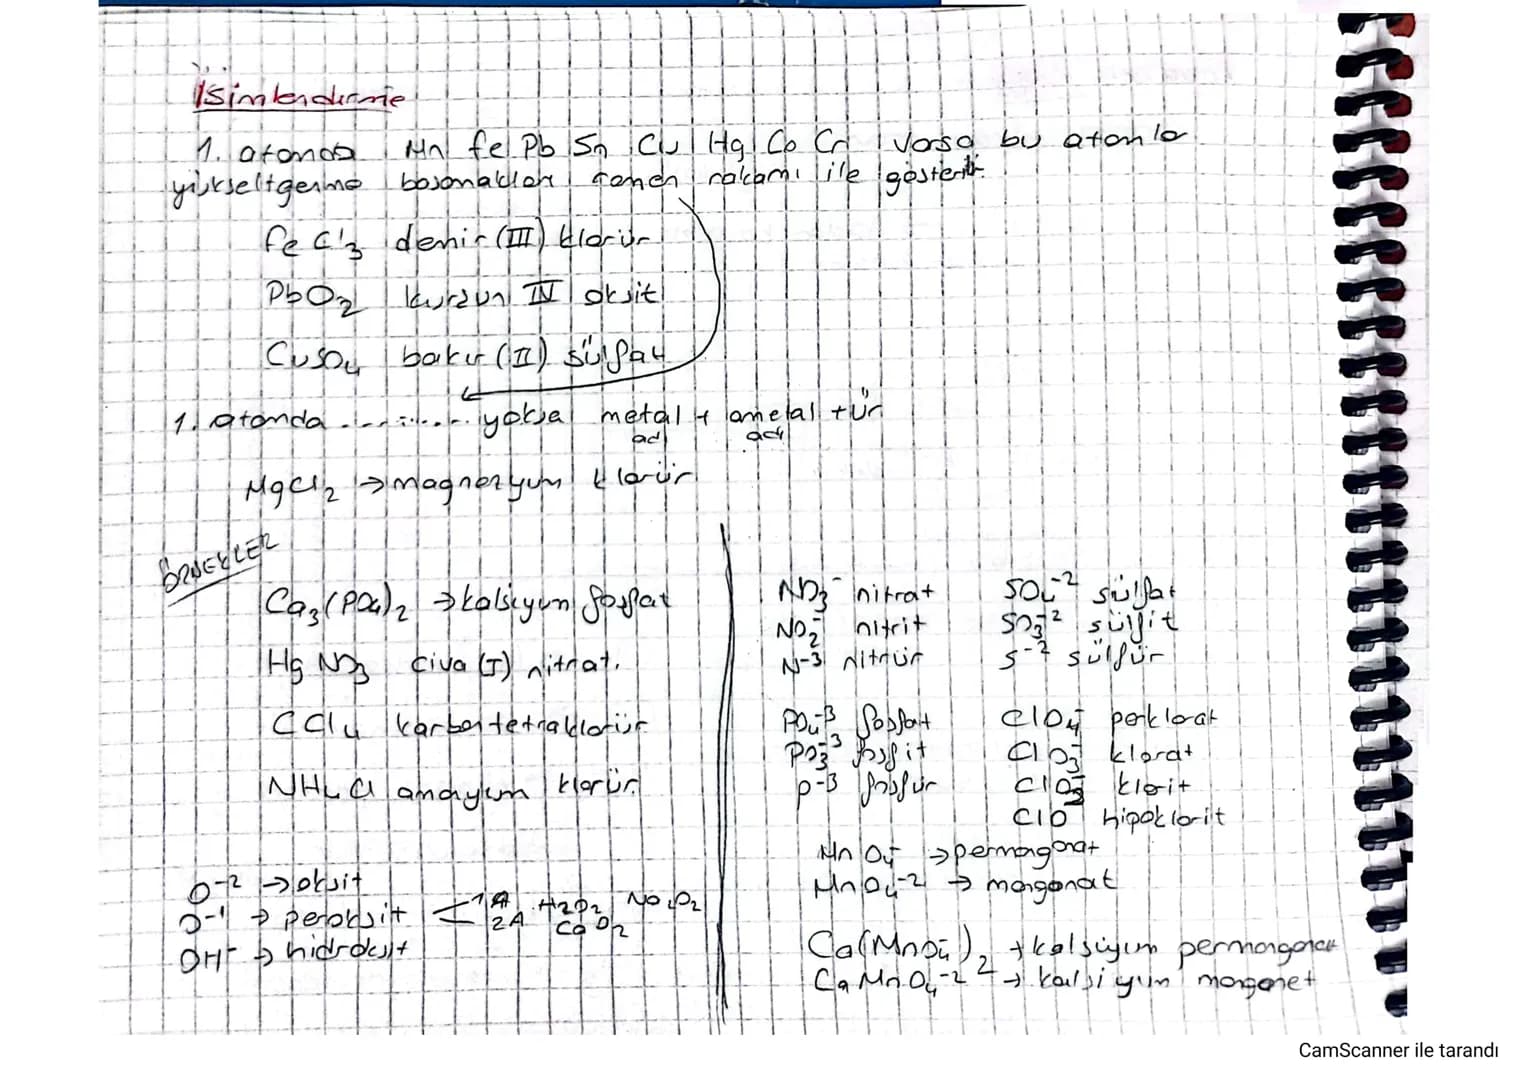 İsimlendirme
1. atomda Mn Fe Pb Sn Cu Hg Co Cr varsa bu atomlar
yükseltgenme basamakları romen rakamı ile gösterilir
FeCl3 demir (III) klorür
PbO2 kurşun IV oksit
CuSO4 bakır (II) sülfat
1. atomda ........... yoksa metal + ametal + ür
adı adı
MgCl2 → magnezyum klorür
ÖRNEKLER
Ca3(PO4)2 → kalsiyum fosfat
HgNO3 civa (I) nitrat.
CCl4 karbontetraklorür
NH4Cl amonyum klorür
O-2 → oksit
O-1 → peroksit < 1A H2O2 Na2O2
2A CaO2
OH- → hidroksit
NO3- nitrat SO4-2 sülfat
NO2- nitrit SO3-2 sülfit
N-3 nitrür S-2 sülfür
PO4-3 fosfat ClO4- perklorat
PO3-3 fosfit ClO3- klorat
P-3 fosfür klorit
ClO- hipoklorit
MnO4- → permanganat
MnO4-2 → manganat
Ca(MnO4-)2 → kalsiyum permanganat
CaMnO4-2 → kalsiyum manganat
CamScanner ile tarandı